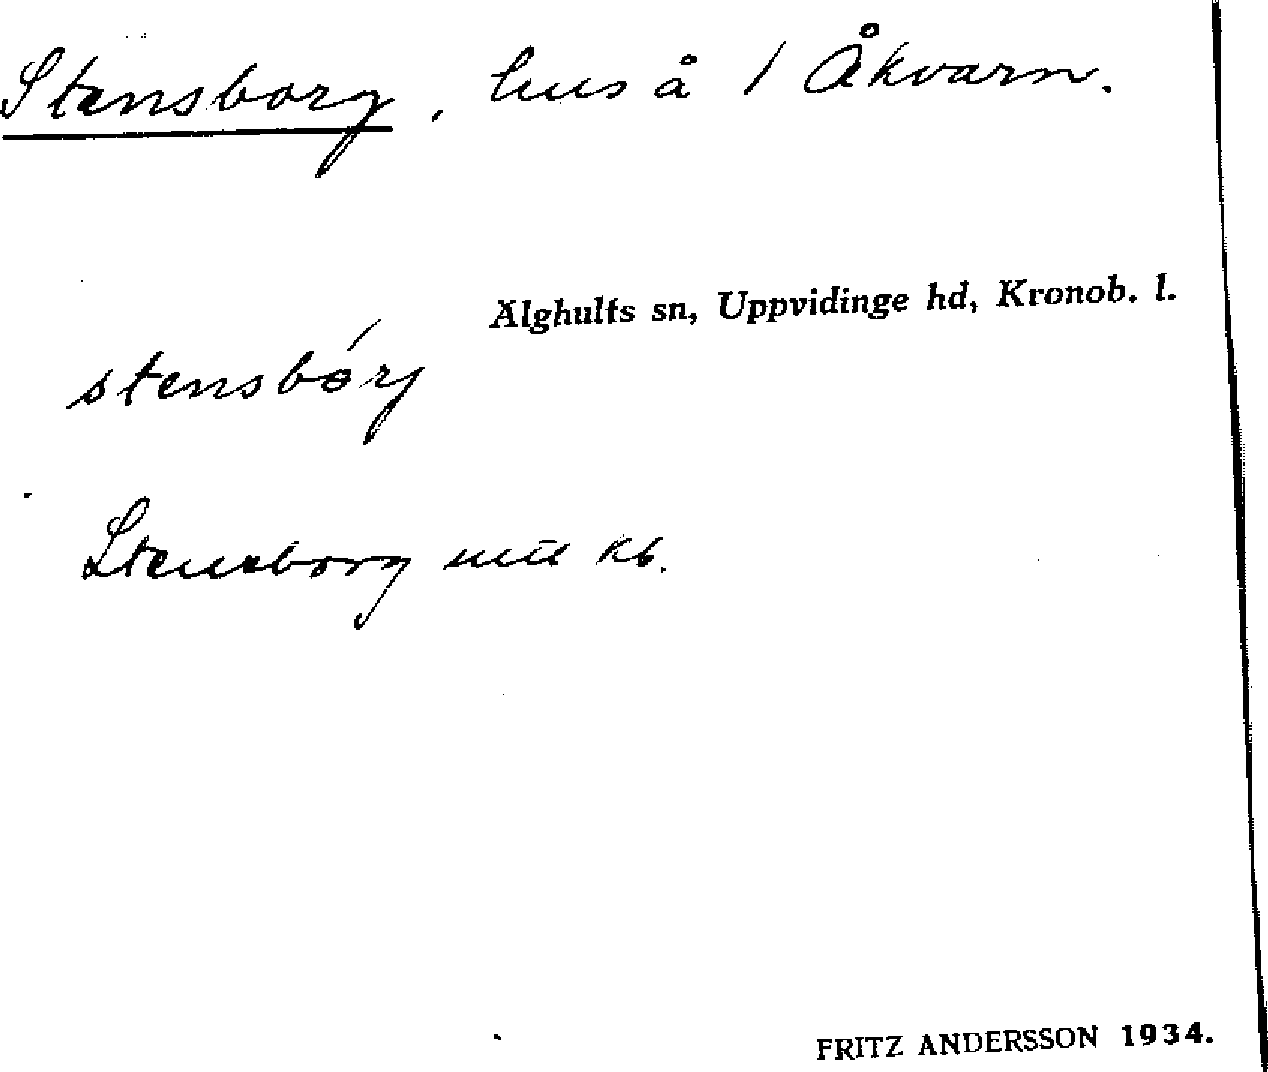 Stensborg, hus å 1 Åkvarn.
Älghults sn, Uppvidinge hd, Kronob. l.
stensbórj
Stensborg mtl kb.
FRITZ ANDERSSON 1934.